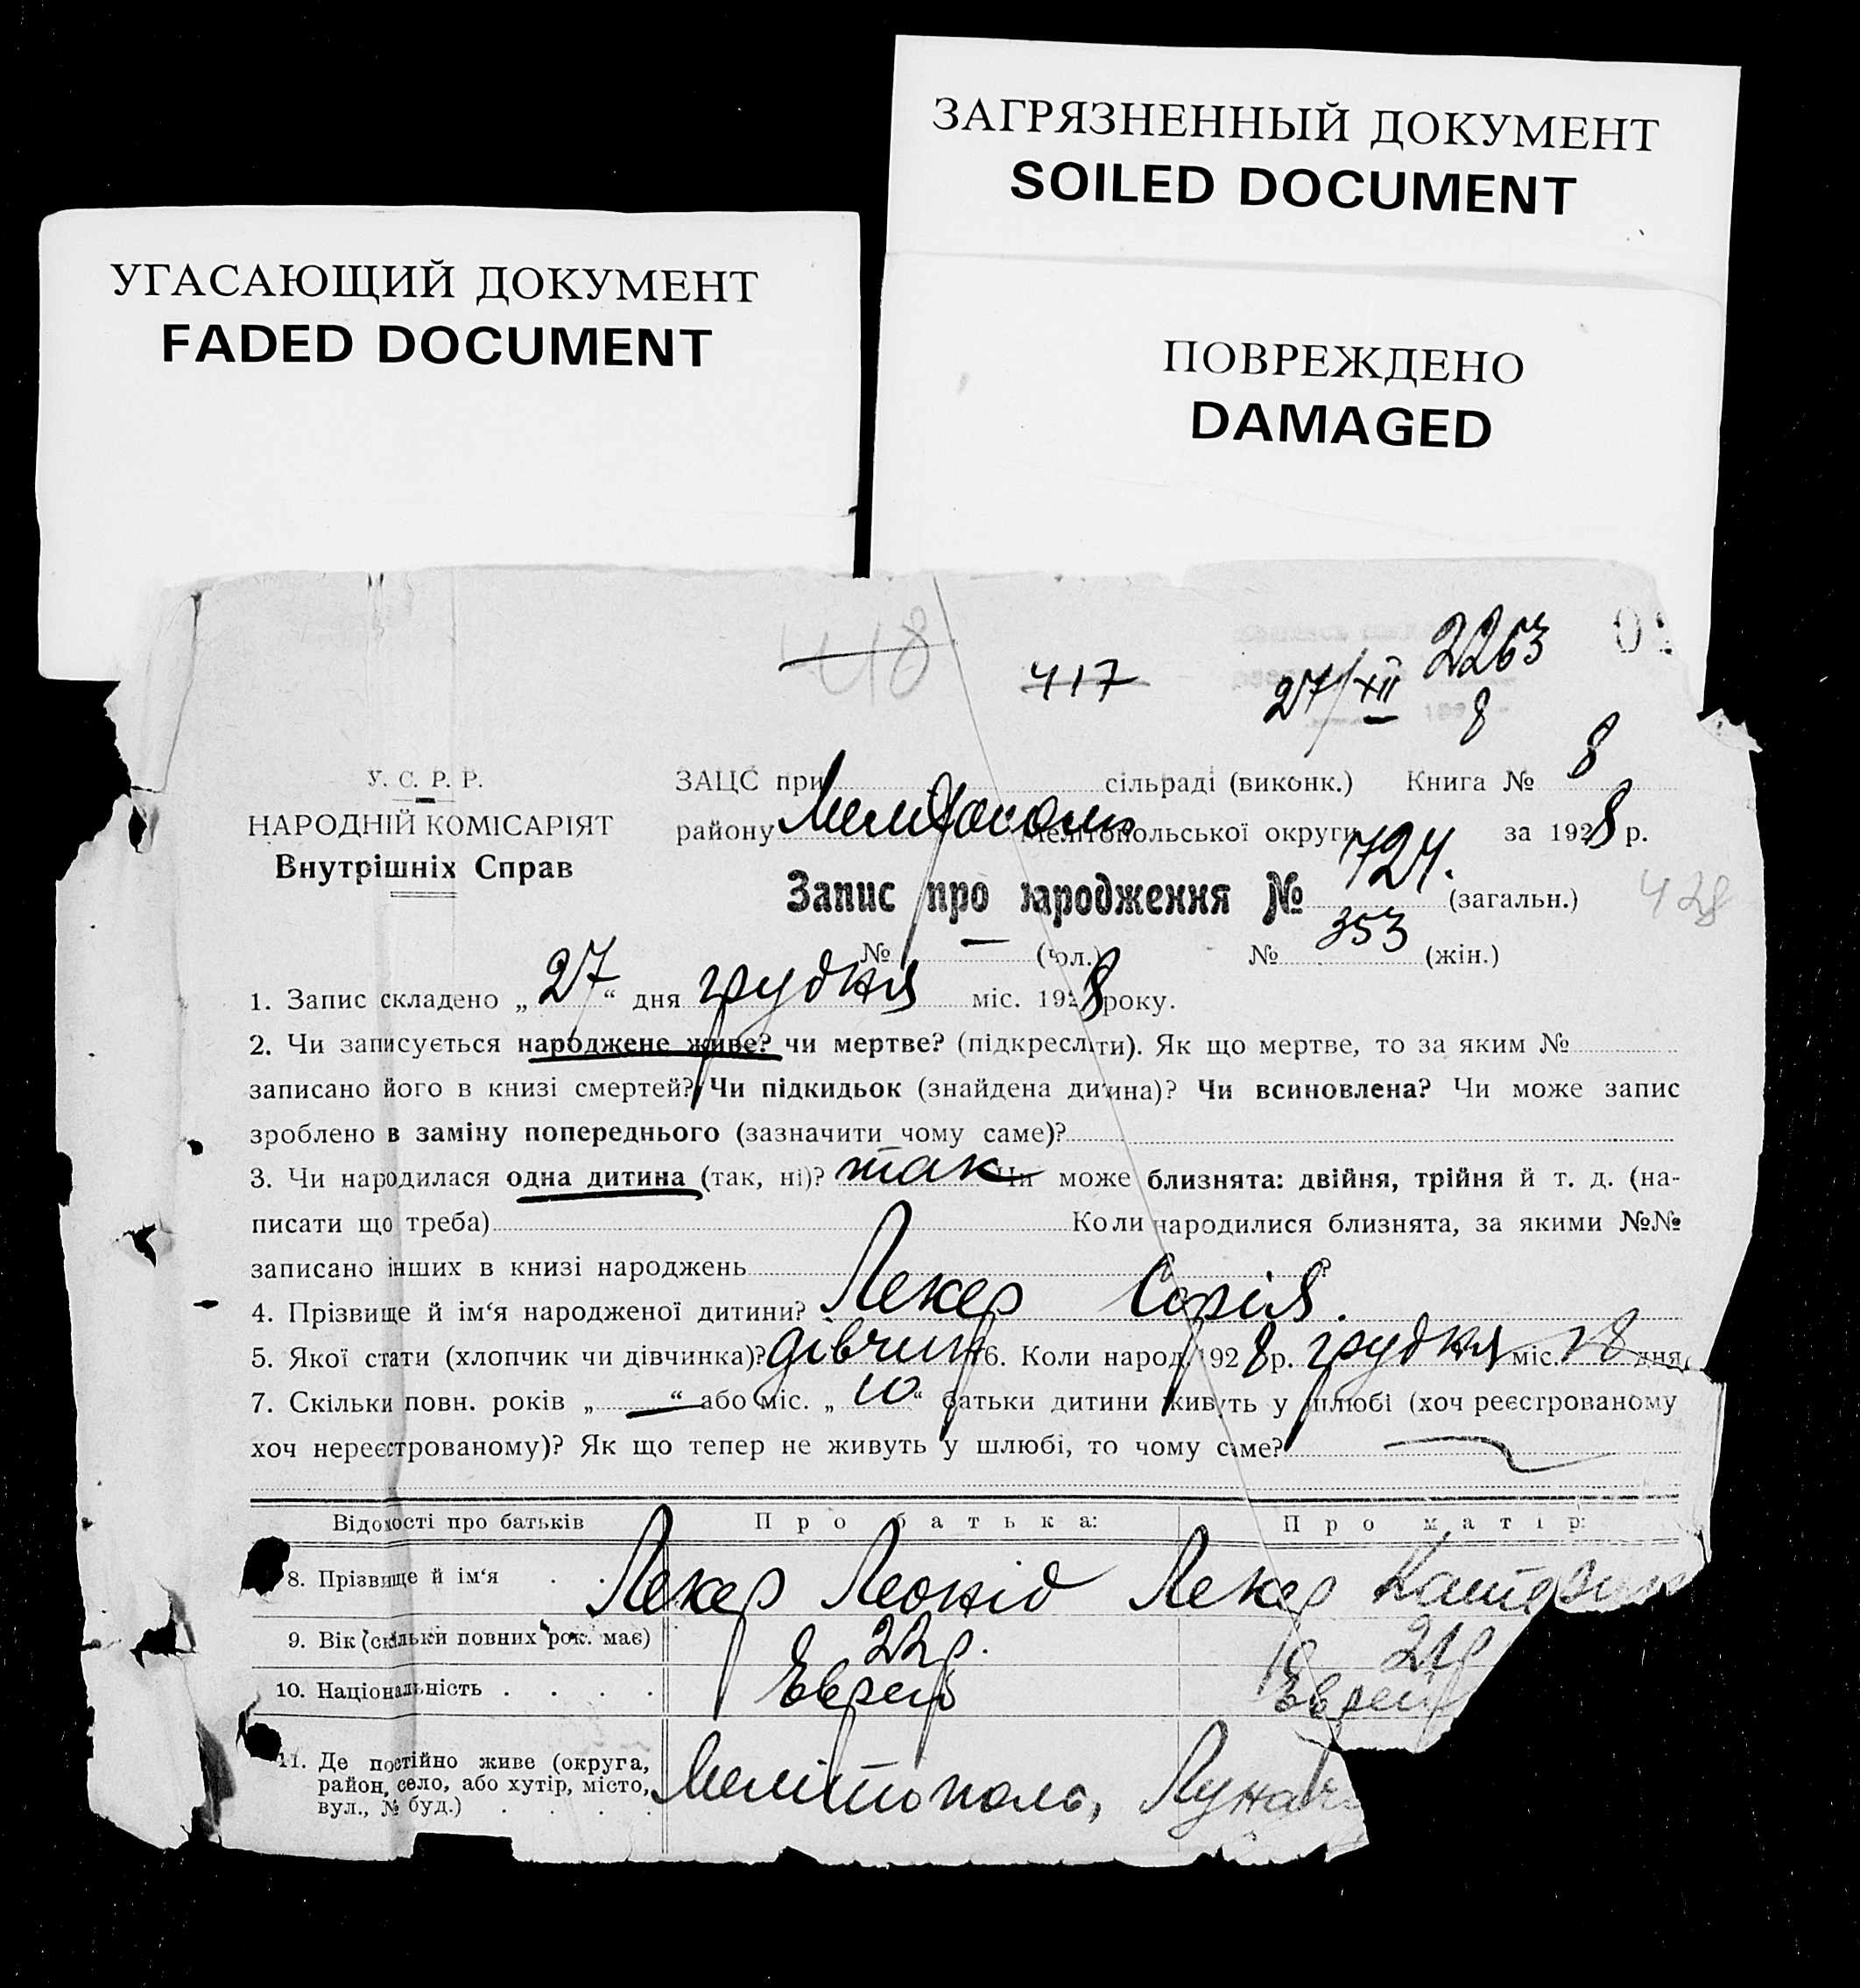 ЗАГРЯЗНЕННЫЙ ДОКУМЕНТ
SOILED DOCUMENT
УГАСАЮЩИЙ ДОКУМЕНТ
FADED DOCUMENT
ПОВРЕЖДЕНО
DAMAGED
418
417
27/XII 8
2263
У. С. Р. Р.
НАРОДНІЙ КОМІСАРІЯТ
Внутрішніх Справ
ЗАЦС при сільраді (виконк.) Книга № 8
району Мелітополь Мелітопольської округи за 1928 р.
Запис про народження № 724. (загальн.) 428
№ — (чол.) № 353 (жін.)
1. Запис складено „ 27 “ дня грудня міс. 1928 року.
2. Чи записується народжене живе? чи мертве? (підкреслити). Як що мертве, то за яким №
записано його в книзі смертей? Чи підкидьок (знайдена дитина)? Чи всиновлена? Чи може запис
зроблено в заміну попереднього (зазначити чому саме)?
3. Чи народилася одна дитина (так, ні)? так Чи може близнята: двійня, трійня й т. д. (на-
писати що треба) Коли народилися близнята, за якими №№
записано інших в книзі народжень
4. Прізвище й ім‘я народженої дитини? Лекер Софія.
5. Якої стати (хлопчик чи дівчинка)? дівчин 6. Коли народ. 1928 р. грудня міс. 18 дня
7. Скільки повн. років „ — “ або міс. „ 10 “ батьки дитини живуть у шлюбі (хоч реєстрованому
хоч нереєстрованому)? Як що тепер не живуть у шлюбі, то чому саме?
Відомості про батьків Про батька: Про матір:
8. Прізвище й ім‘я Лекер Леонід Лекер
9. Вік (скільки повних рок. має) 22 р. 21 р
10. Національність Еврей Еврей
11. Де постійно живе (округа,
район, село, або хутір, місто,
вул., № буд.) Мелітополь, Лунач